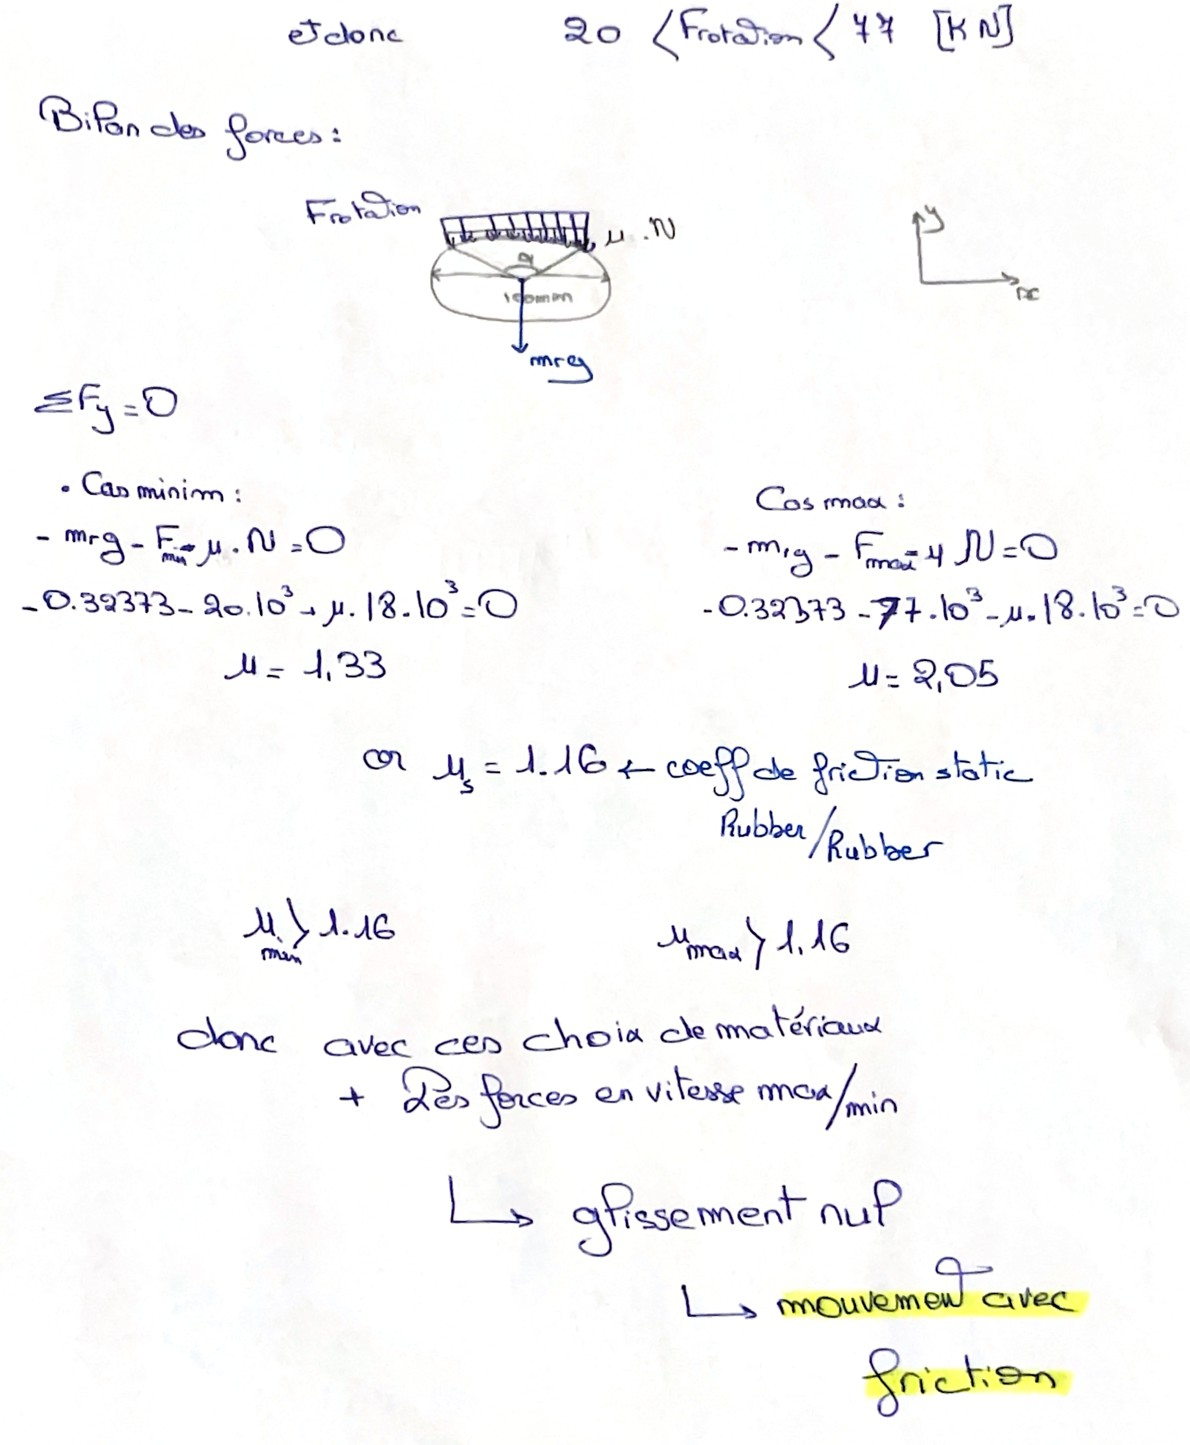 et donc 20 < Frotation < 77 [KN]
Bilan des forces :
Frotation
μ.N
y
α
100mm
x
mrg
ΣFy = 0
. Cas minim :
- mrg - Fmin - μ.N = 0
- 0.32373 - 20.10³ - μ.18.10³ = 0
μ = 1,33
Cas max :
- mrg - Fmax - μ N = 0
- 0.32373 - 77.10³ - μ.18.10³ = 0
μ = 2,05
or μs = 1.16 ← coeff de friction static
Rubber/Rubber
μmin > 1.16
μmax > 1,16
donc avec ces choix de matériaux
+ Les forces en vitesse max/min
↳ glissement nul
↳ mouvement avec
friction